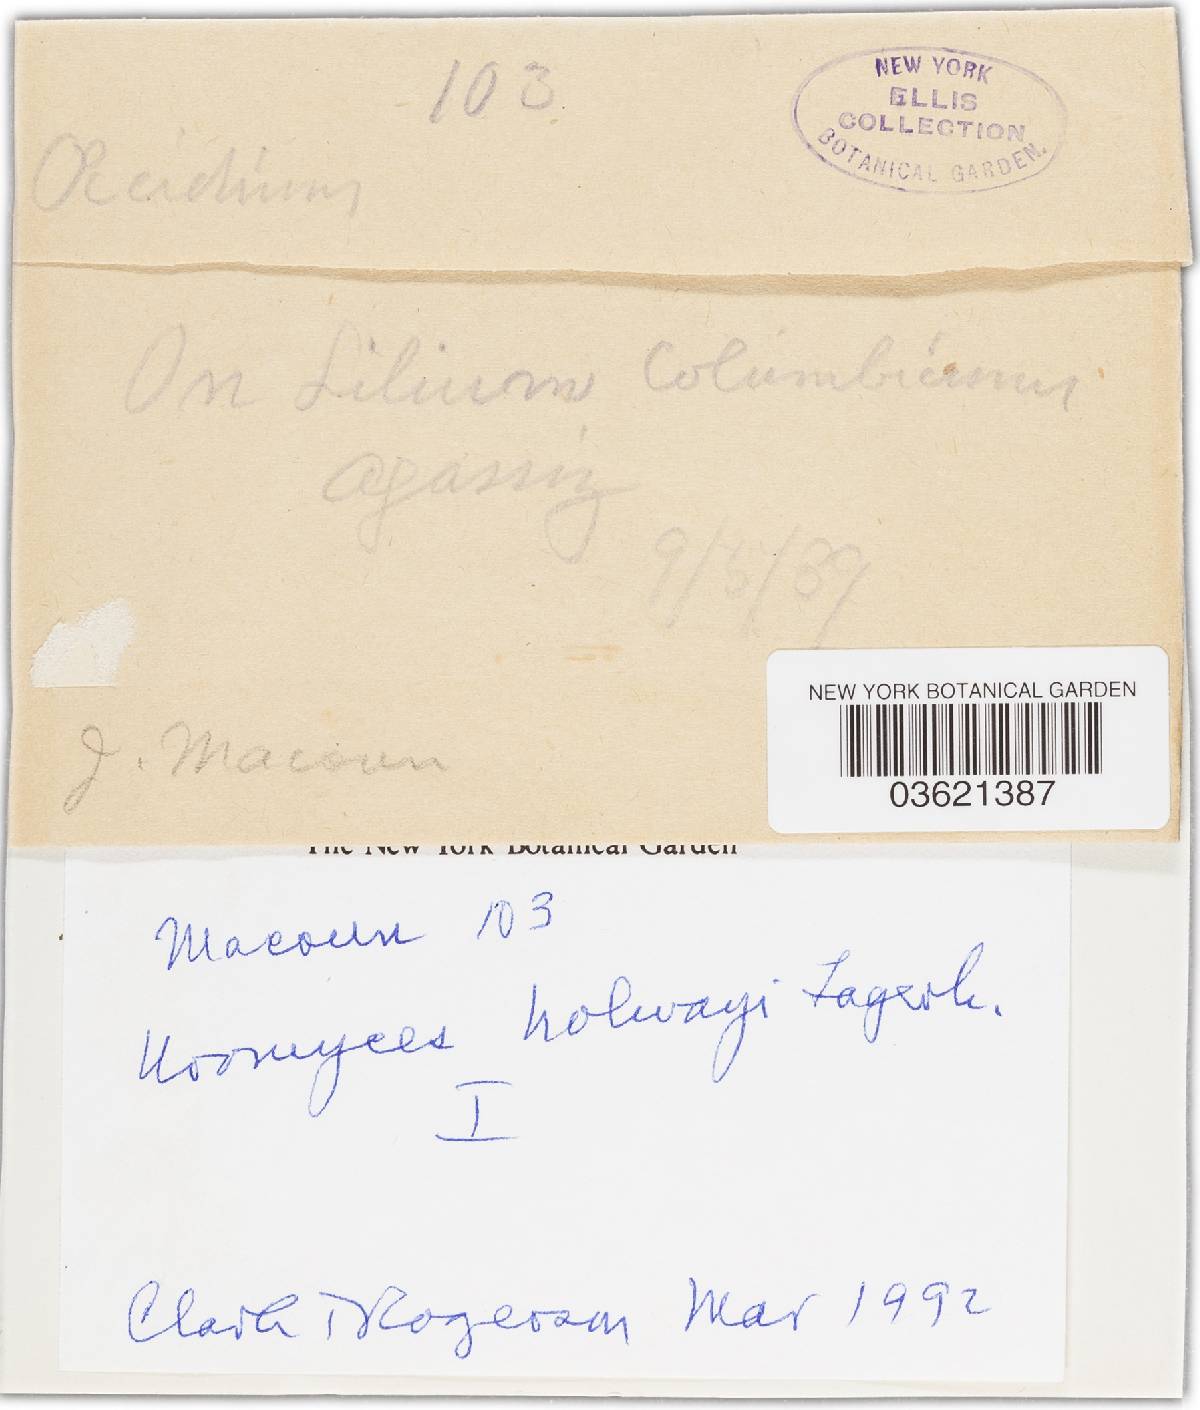 103
NEW YORK
ELLIS
COLLECTION
BOTANICAL GARDEN.
Œcidium
On Lilium Columbianum
Agassiz
9/5/89
J. Macoun
NEW YORK BOTANICAL GARDEN
03621387
The New York Botanical Garden
Macoun 103
Uromyces holwayi Lagerh.
I
Clark T Rogerson Mar 1992